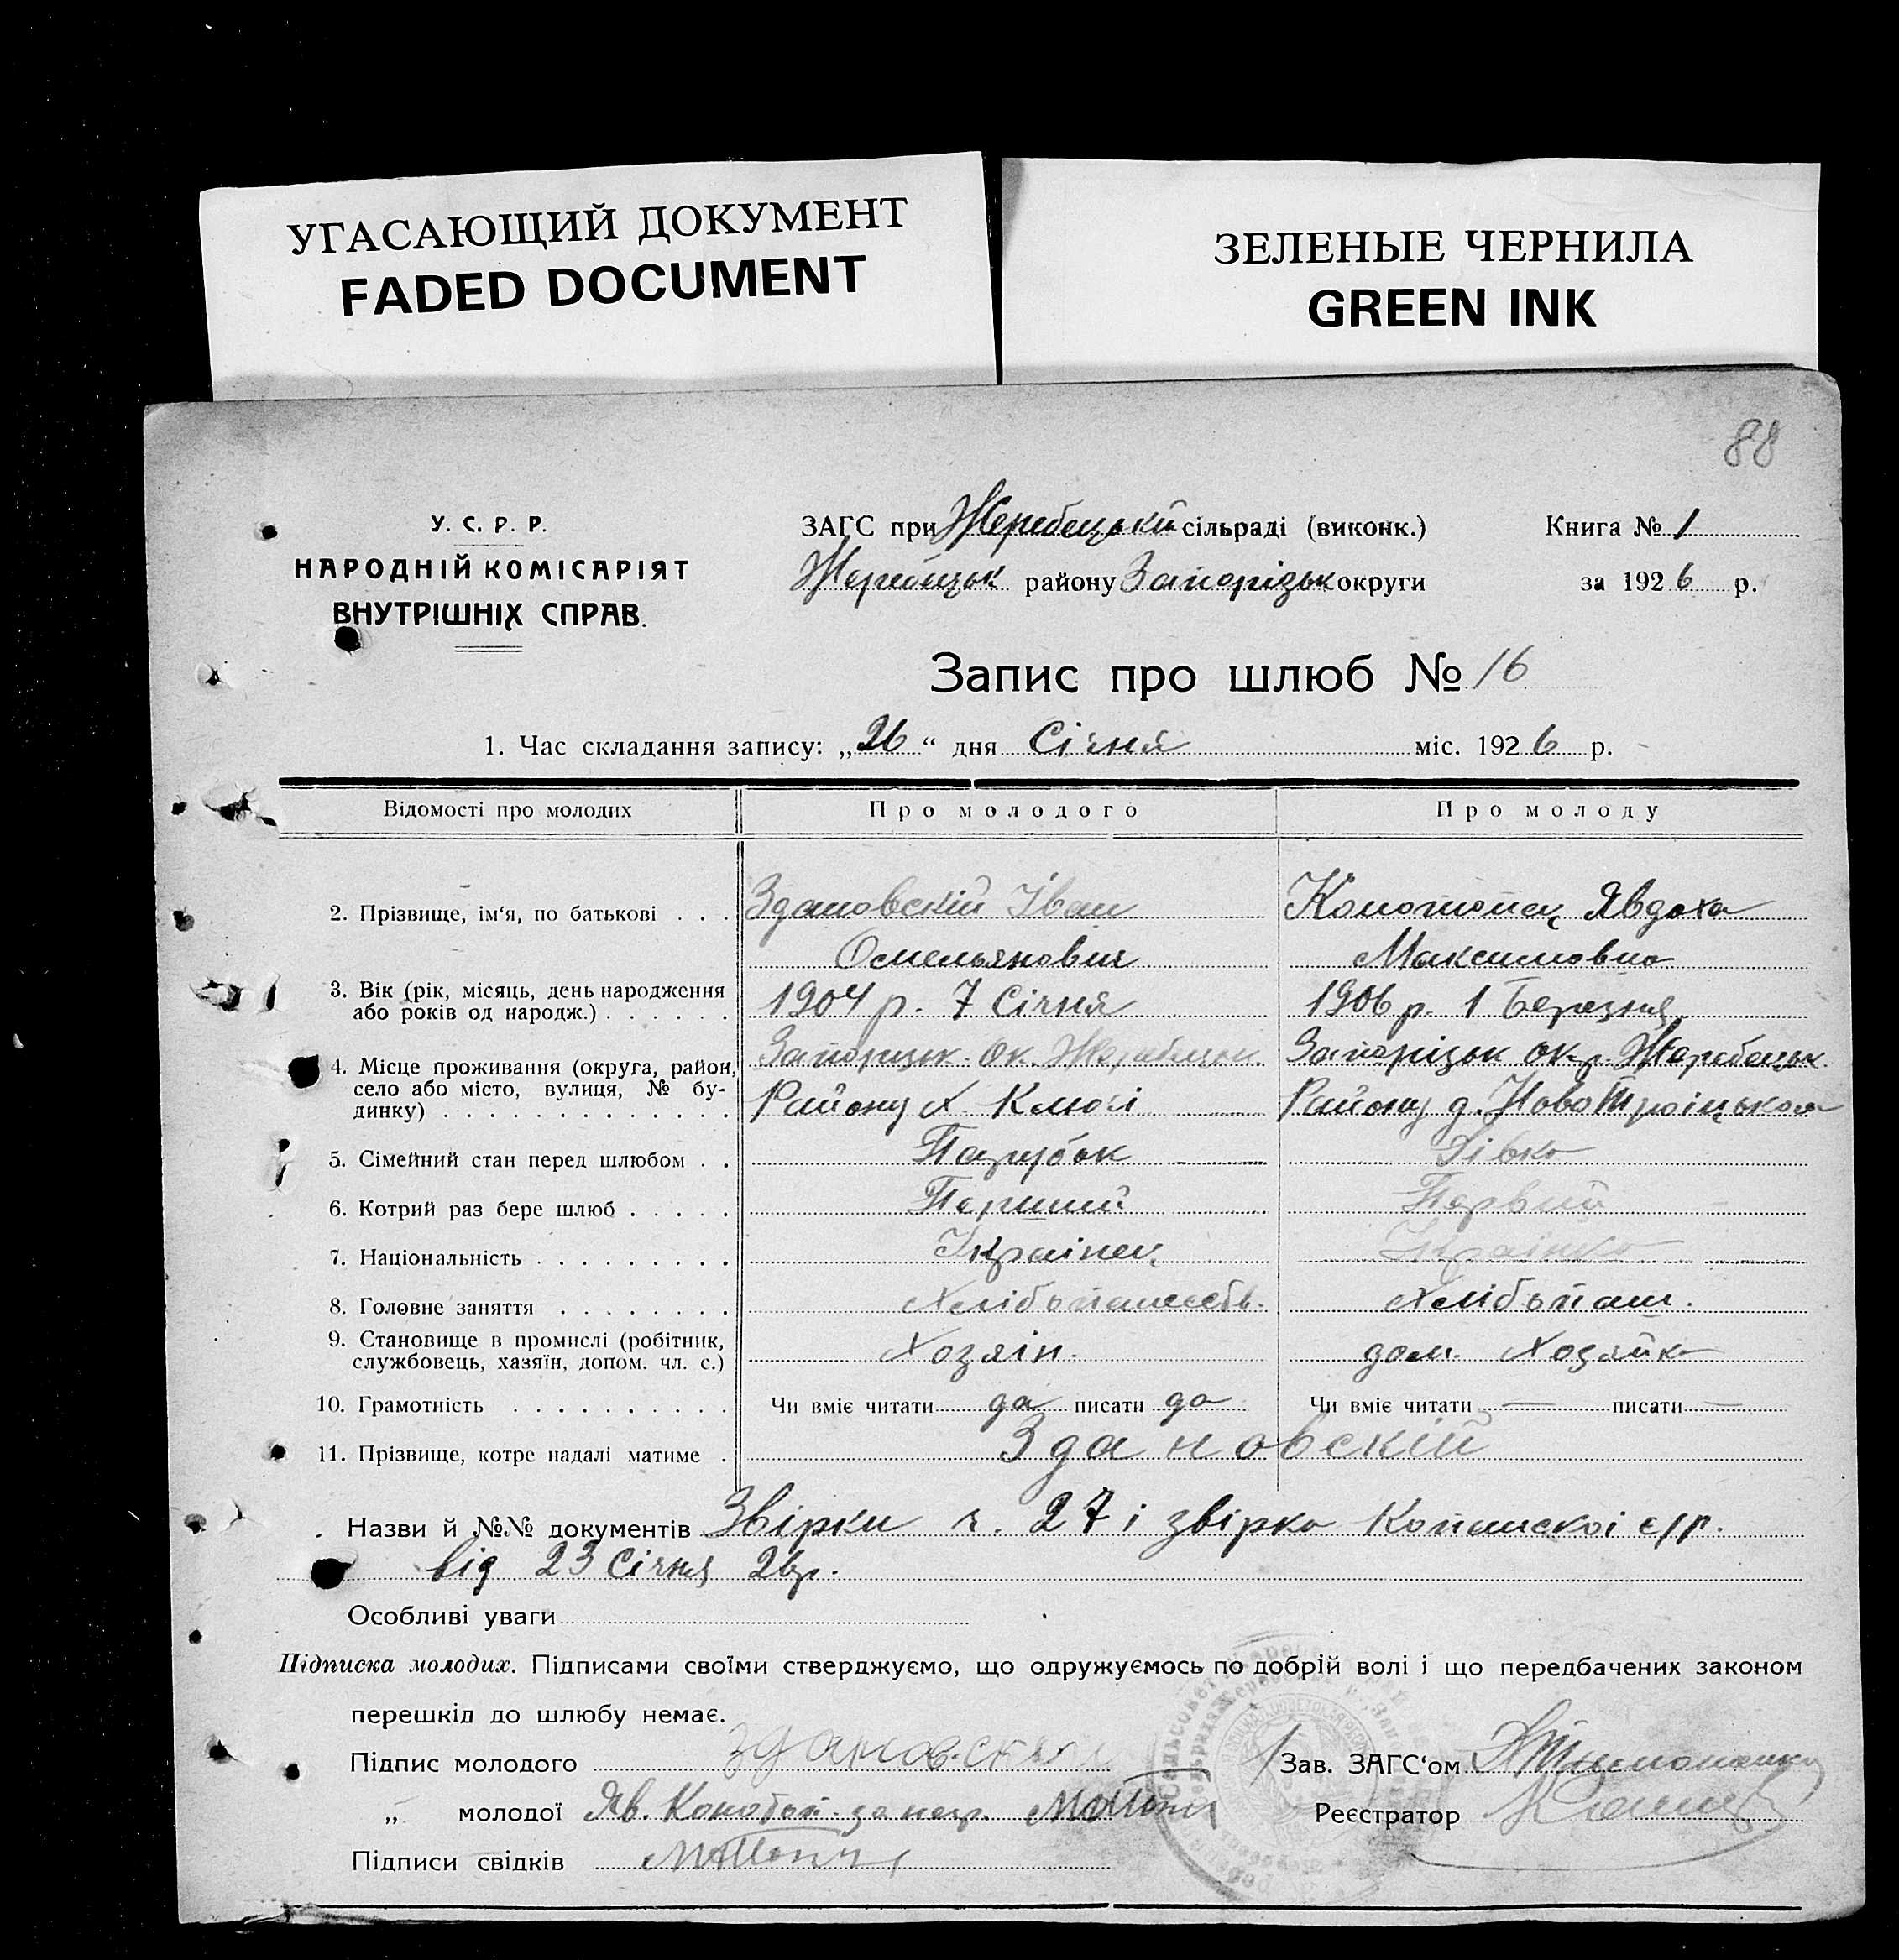 УГАСАЮЩИЙ ДОКУМЕНТ
FADED DOCUMENT
ЗЕЛЕНЫЕ ЧЕРНИЛА
GREEN INK
88
У. С. Р. Р.
НАРОДНІЙ КОМІСАРІЯТ
ВНУТРІШНІХ СПРАВ.
ЗАГС при Жеребецькій сільраді (виконк.)
Жеребецьк району Запорізьк округи
Книга № 1
за 1926 р.
Запис про шлюб № 16
1. Час складання запису: „26“ дня Січня міс. 1926 р.
Відомості про молодих Про молодого Про молоду
2. Прізвище, ім‘я, по батькові . . . Здановскій Іван Конотопец Явдоха
Омельянович Максимовна
3. Вік (рік, місяць, день народження
або років од народж.) . . . . . . 1904 р. 7 Січня 1906 р. 1 Березня
4. Місце проживання (округа, район, Запорізьк. Ок. Жеребецьк. Запорізьк окр. Жеребецьк.
село або місто, вулиця, № бу-
динку) . . . . . . . . . . . . . Району х. Ключі Району д. Ново Троіцькоя
5. Сімейний стан перед шлюбом . . Парубок Дівка
6. Котрий раз бере шлюб . . . . . Перший Первий
7. Національність . . . . . . . . . Украінец Украінка
8. Головне заняття . . . . . . . Хлібопашеств. Хлібопаш.
9. Становище в промислі (робітник,
службовець, хазяїн, допом. чл. с.) Хозяін. дом. Хозяйка
10. Грамотність . . . . . . . . . . Чи вміє читати да писати да Чи вміє читати — писати —
11. Прізвище, котре надалі матиме . Здановскій
. Назви й №№ документів Звірки ч. 27 і звірка Копанскоі с/р.
від 23 Січня 26р.
Особливі уваги
Підписка молодих. Підписами своїми стверджуємо, що одружуємось по добрій волі і що передбачених законом
перешкід до шлюбу немає.
Підпис молодого Здановский
Зав. ЗАГС‘ом
„ молодої Яв. Конотоп. за негр.
Реєстратор
Підписи свідків